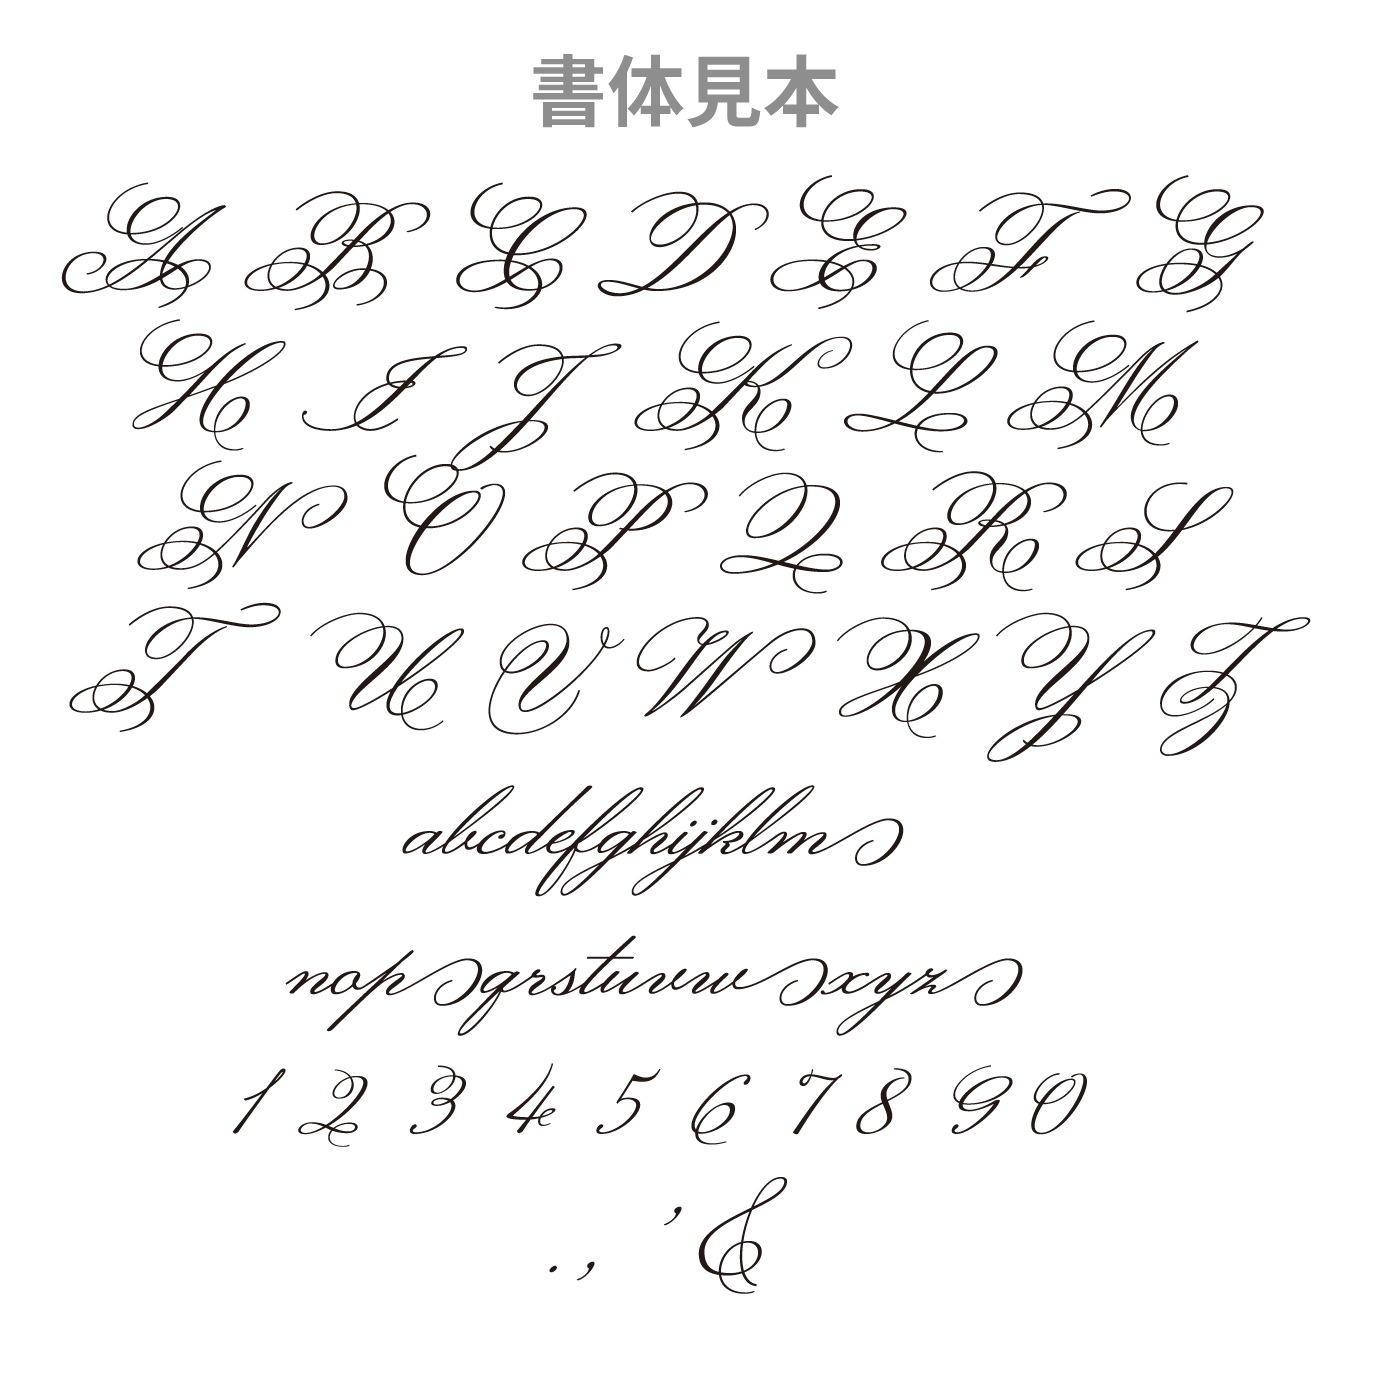 書体見本
A B C D E F G
H I J K L M
N O P Q R S
T U V W X Y Z
abcdefghijklm
nopqrstuvwxyz
1 2 3 4 5 6 7 8 9 0
. , ’ &